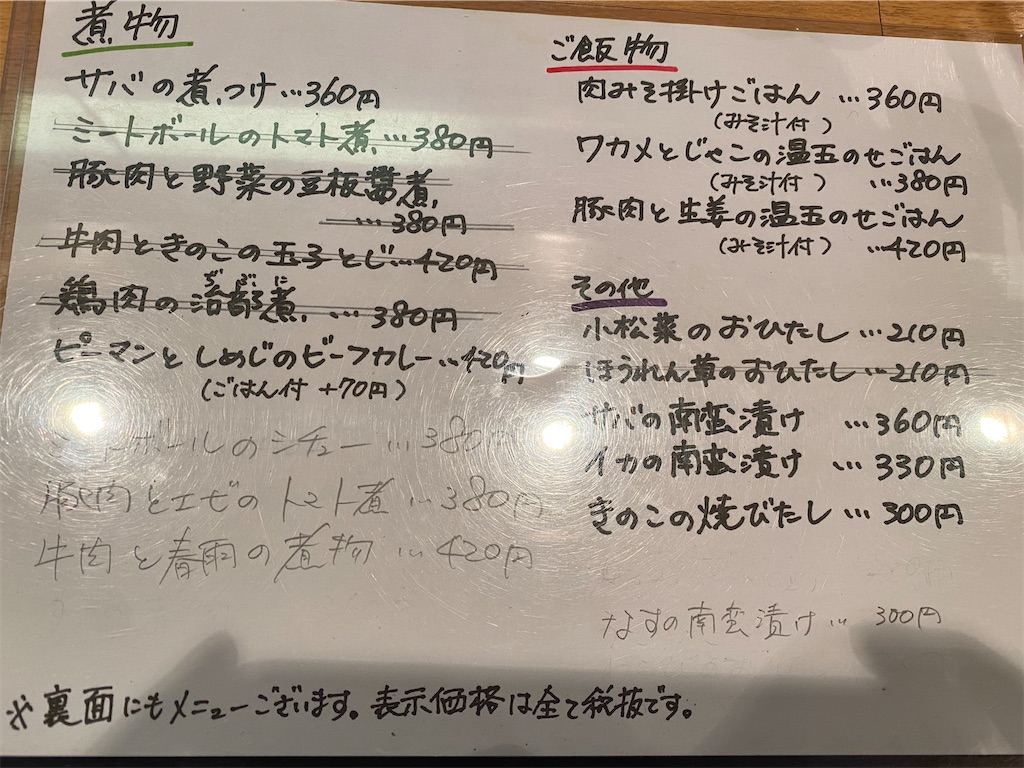 煮物
サバの煮つけ…360円
ミートボールのトマト煮…380円
豚肉と野菜の豆板醤煮
…380円
牛肉ときのこの玉子とじ…420円
じぶに
鶏肉の治部煮…380円
ピーマンとしめじのビーフカレー…420円
(ごはん付 +70円)
ミートボールのシチュー…380円
豚肉とエビのトマト煮…380円
牛肉と春雨の煮物…420円
ご飯物
肉みそ掛けごはん…360円
(みそ汁付)
ワカメとじゃこの温玉のせごはん
(みそ汁付) …380円
豚肉と生姜の温玉のせごはん
(みそ汁付) …420円
その他
小松菜のおひたし…210円
ほうれん草のおひたし…210円
サバの南蛮漬け …360円
イカの南蛮漬け …330円
きのこの焼びたし…300円
なすの南蛮漬け… 300円
※裏面にもメニューございます。表示価格は全て税抜です。